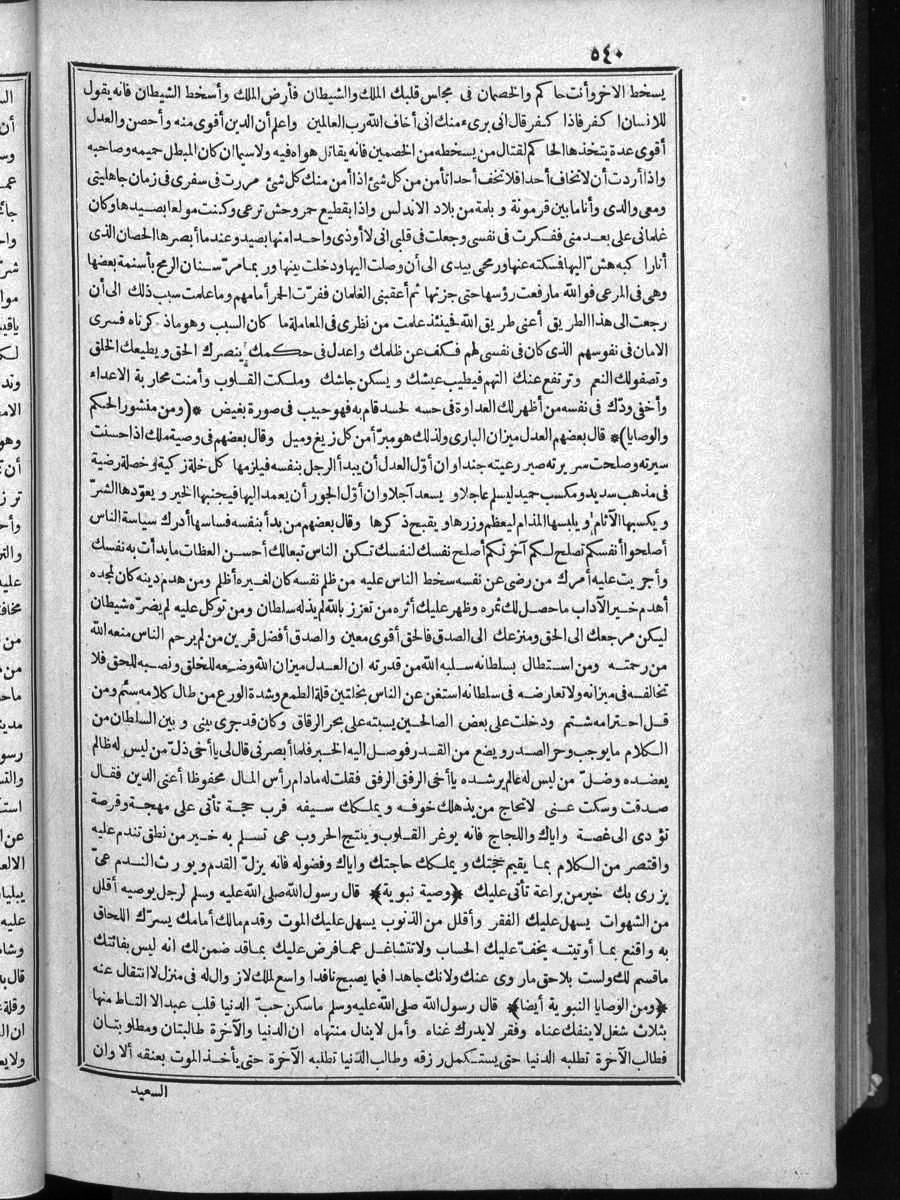 ٥٤٠
يسخط الآخر وأنت حاكم والخصمان في مجلس قلبك الملك والشيطان فأرض الملك وأسخط الشيطان فانه يقول
للانسان اكفر فاذا كفر قال اني بريء منك اني أخاف الله رب العالمين واعلم أن الدين أقوى منه وأحصن والعدل
أقوى عدة يتخذها الحاكم لقتال من يسخطه من الخصمين فانه يقاتل هواه فيه ولا سيما ان كان المبطل حميمه وصاحبه
واذا أردت أن لا تخاف أحدا فلا تخف أحدا تأمن من كل شئ اذا أمن منك كل شئ مررت في سفري في زمان جاهليتي
ومعي والدي وأنا ما بين قرمونة وبلمة من بلاد الاندلس واذا بقطيع حمر وحش ترعى وكنت مولعا بصيدها وكان
غلماني على بعد مني ففكرت في نفسي وجعلت في قلبي اني لا أوذي واحدا منها بصيد وعندما أبصرها الحصان الذي
أنا راكبه هش اليها فمسكته عنها ورمحي بيدي الى أن وصلت اليها ودخلت بينها وربما مر سنان الرمح بأسنمة بعضها
وهي في المرعى فوالله ما رفعت رؤسها حتى جزتها ثم أعقبني الغلمان ففرت الحمر أمامهم وما علمت سبب ذلك الى أن
رجعت الى هذا الطريق أعني طريق الله فحينئذ علمت من نظري في المعاملة ما كان السبب وهو ما ذكرناه فسرى
الامان في نفوسهم الذي كان في نفسي لهم فكف عن ظلمك واعدل في حكمك ينصرك الحق ويطيعك الخلق
وتصفو لك النعم وترتفع عنك التهم فيطيب عيشك ويسكن جاشك وملكت القلوب وأمنت محاربة الاعداء
وأخفى ودّك في نفسه من أظهر لك العداوة في حسه لحسد قام به فهو حبيب في صورة بغيض *(ومن منشور الحكم
والوصايا)* قال بعضهم العدل ميزان الباري ولذلك هو مبرّأ من كل زيغ وميل وقال بعضهم في وصية ملك اذا حسنت
سيرته وصلحت سريرته صير رعيته جندا وان أوّل العدل أن يبدأ الرجل بنفسه فيلزمها كل خلة زكية وخصلة رضية
في مذهب سديد ومكسب حميد ليسلم عاجلا ويسعد آجلا وان أوّل الجور أن يعمد اليها فيجنبها الخير ويعوّدها الشرّ
ويكسبها الآثام ويلبسها المذام ليعظم وزرها ويقبح ذكرها وقال بعضهم من بدأ بنفسه فساسها أدرك سياسة الناس
أصلحوا أنفسكم تصلح لكم آخرتكم أصلح نفسك لنفسك تكن الناس تبعا لك أحسن العظات ما بدأت به نفسك
وأجريت عليه أمرك من رضى عن نفسه سخط الناس عليه من ظلم نفسه كان لغيره أظلم ومن هدم دينه كان لمجده
أهدم خير الآداب ما حصل لك ثمره وظهر عليك أثره من تعزز بالله لم يذله سلطان ومن توكل عليه لم يضرّه شيطان
ليكن مرجعك الى الحق ومنزعك الى الصدق فالحق أقوى معين والصدق أفضل قرين من لم يرحم الناس منعه الله
من رحمته ومن استطال بسلطانه سلبه الله من قدرته ان العدل ميزان الله وضعه للخلق ونصبه للحق فلا
تخالفه في ميزانه ولا تعارضه في سلطانه استغن عن الناس بخلتين قلة الطمع وشدة الورع من طال كلامه سئم ومن
قل احترامه شتم ودخلت على بعض الصالحين بسبتة على بحر الزقاق وكان قد جرى بيني وبين السلطان من
الكلام ما يوجب وحر الصدر ويضع من القدر فوصل اليه الخبر فلما أبصرني قال لي يا أخي ذل من ليس له ظالم
يعضده وضل من ليس له عالم يرشده يا أخي الرفق الرفق فقلت له ما دام رأس المال محفوظا أعني الدين فقال
صدقت وسكت عني لا تحاج من يذهلك خوفه ويملكك سيفه فرب حجة تأتي على مهجة وفرصة
تؤدي الى غصة واياك واللجاج فانه يوغر القلوب وينتج الحروب عي تسلم به خير من نطق تندم عليه
واقتصر من الكلام بما يقيم حجتك ويملكك حاجتك واياك وفضوله فانه يزلّ القدم ويورث الندم عيّ
يزري بك خير من براعة تأتي عليك ﴿وصية نبوية﴾ قال رسول الله صلى الله عليه وسلم لرجل يوصيه أقلل
من الشهوات يسهل عليك الفقر وأقلل من الذنوب يسهل عليك الموت وقدم مالك أمامك يسرّك اللحاق
به واقنع بما أوتيته يخفّ عليك الحساب ولا تتشاغل عما فرض عليك بما قد ضمن لك انه ليس بفائتك
ما قسم لك ولست بلاحق ما زوى عنك ولا تك جاهدا فيما يصبح نافدا واسع لملك لا زوال له في منزل لا انتقال عنه
﴿ومن الوصايا النبوية أيضا﴾ قال رسول الله صلى الله عليه وسلم ما سكن حبّ الدنيا قلب عبد الا التاط منها
بثلاث شغل لا ينفك عناه وفقر لا يدرك غناه وأمل لا ينال منتهاه ان الدنيا والآخرة طالبتان ومطلوبتان
فطالب الآخرة تطلبه الدنيا حتى يستكمل رزقه وطالب الدنيا تطلبه الآخرة حتى يأخذ الموت بعنقه ألا وان
السعيد